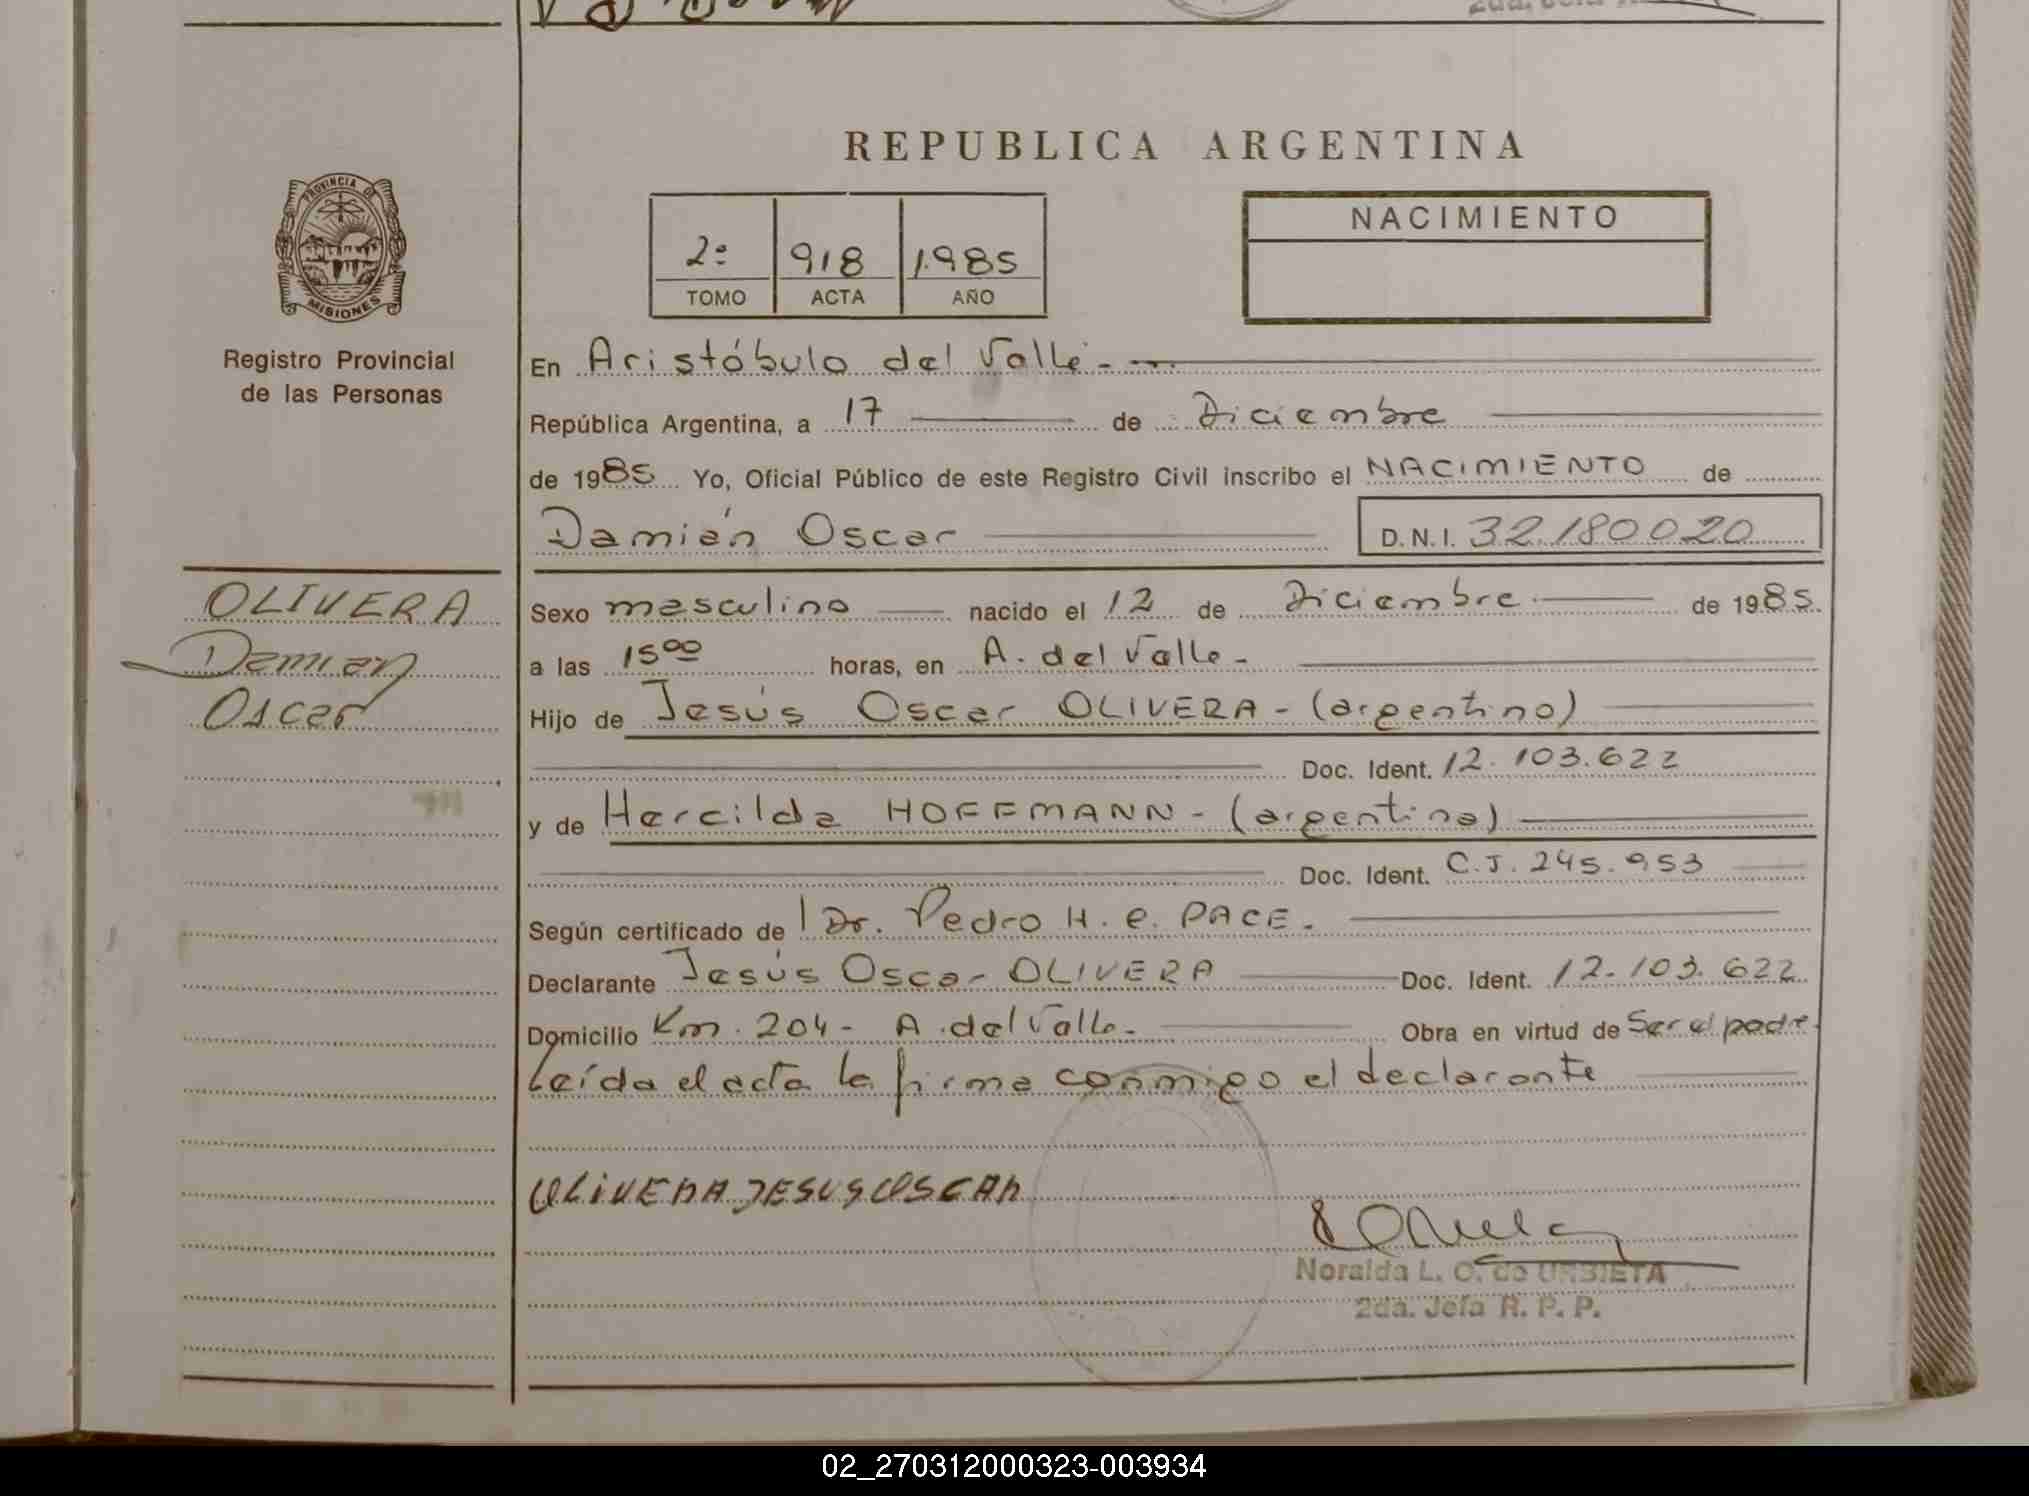 REPUBLICA ARGENTINA
PROVINCIA DE
MISIONES
Registro Provincial
de las Personas
2º 918 1985
TOMO ACTA AÑO
NACIMIENTO
En Aristóbulo del Valle -
República Argentina, a 17 de Diciembre
de 1985 Yo, Oficial Público de este Registro Civil inscribo el NACIMIENTO de
Damián Oscar D.N.I. 32.180020
OLIVERA
Damian
Oscar
Sexo masculino nacido el 12 de Diciembre de 1985.
a las 15⁰⁰ horas, en A. del Valle -
Hijo de Jesús Oscar OLIVERA - (argentino)
Doc. Ident. 12.103.622
y de Hercilda HOFFMANN - (argentina)
Doc. Ident. C.J. 245.953
Según certificado de Dr. Pedro H. e. PACE.
Declarante Jesús Oscar OLIVERA Doc. Ident. 12.103.622
Domicilio Km. 204 - A. del Valle - Obra en virtud de Ser el padre.
Leída el acta la firma conmigo el declarante
OLIVERA JESUS OSCAR
Noralda L. O. de URBIETA
2da. Jefa R. P. P.
02_270312000323-003934